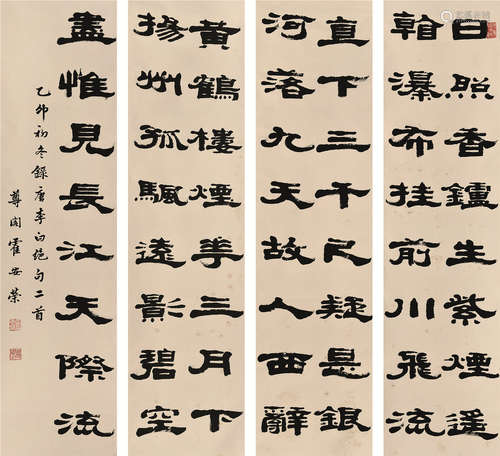 日照香鑪生紫煙遙
看瀑布挂前川飛流
直下三千尺疑是銀
河落九天故人西辭
黃鶴樓煙華三月下
揚州孤颿遠影碧空
盡惟見長江天際流
乙卯初冬錄唐李白絕句二首
霍安榮